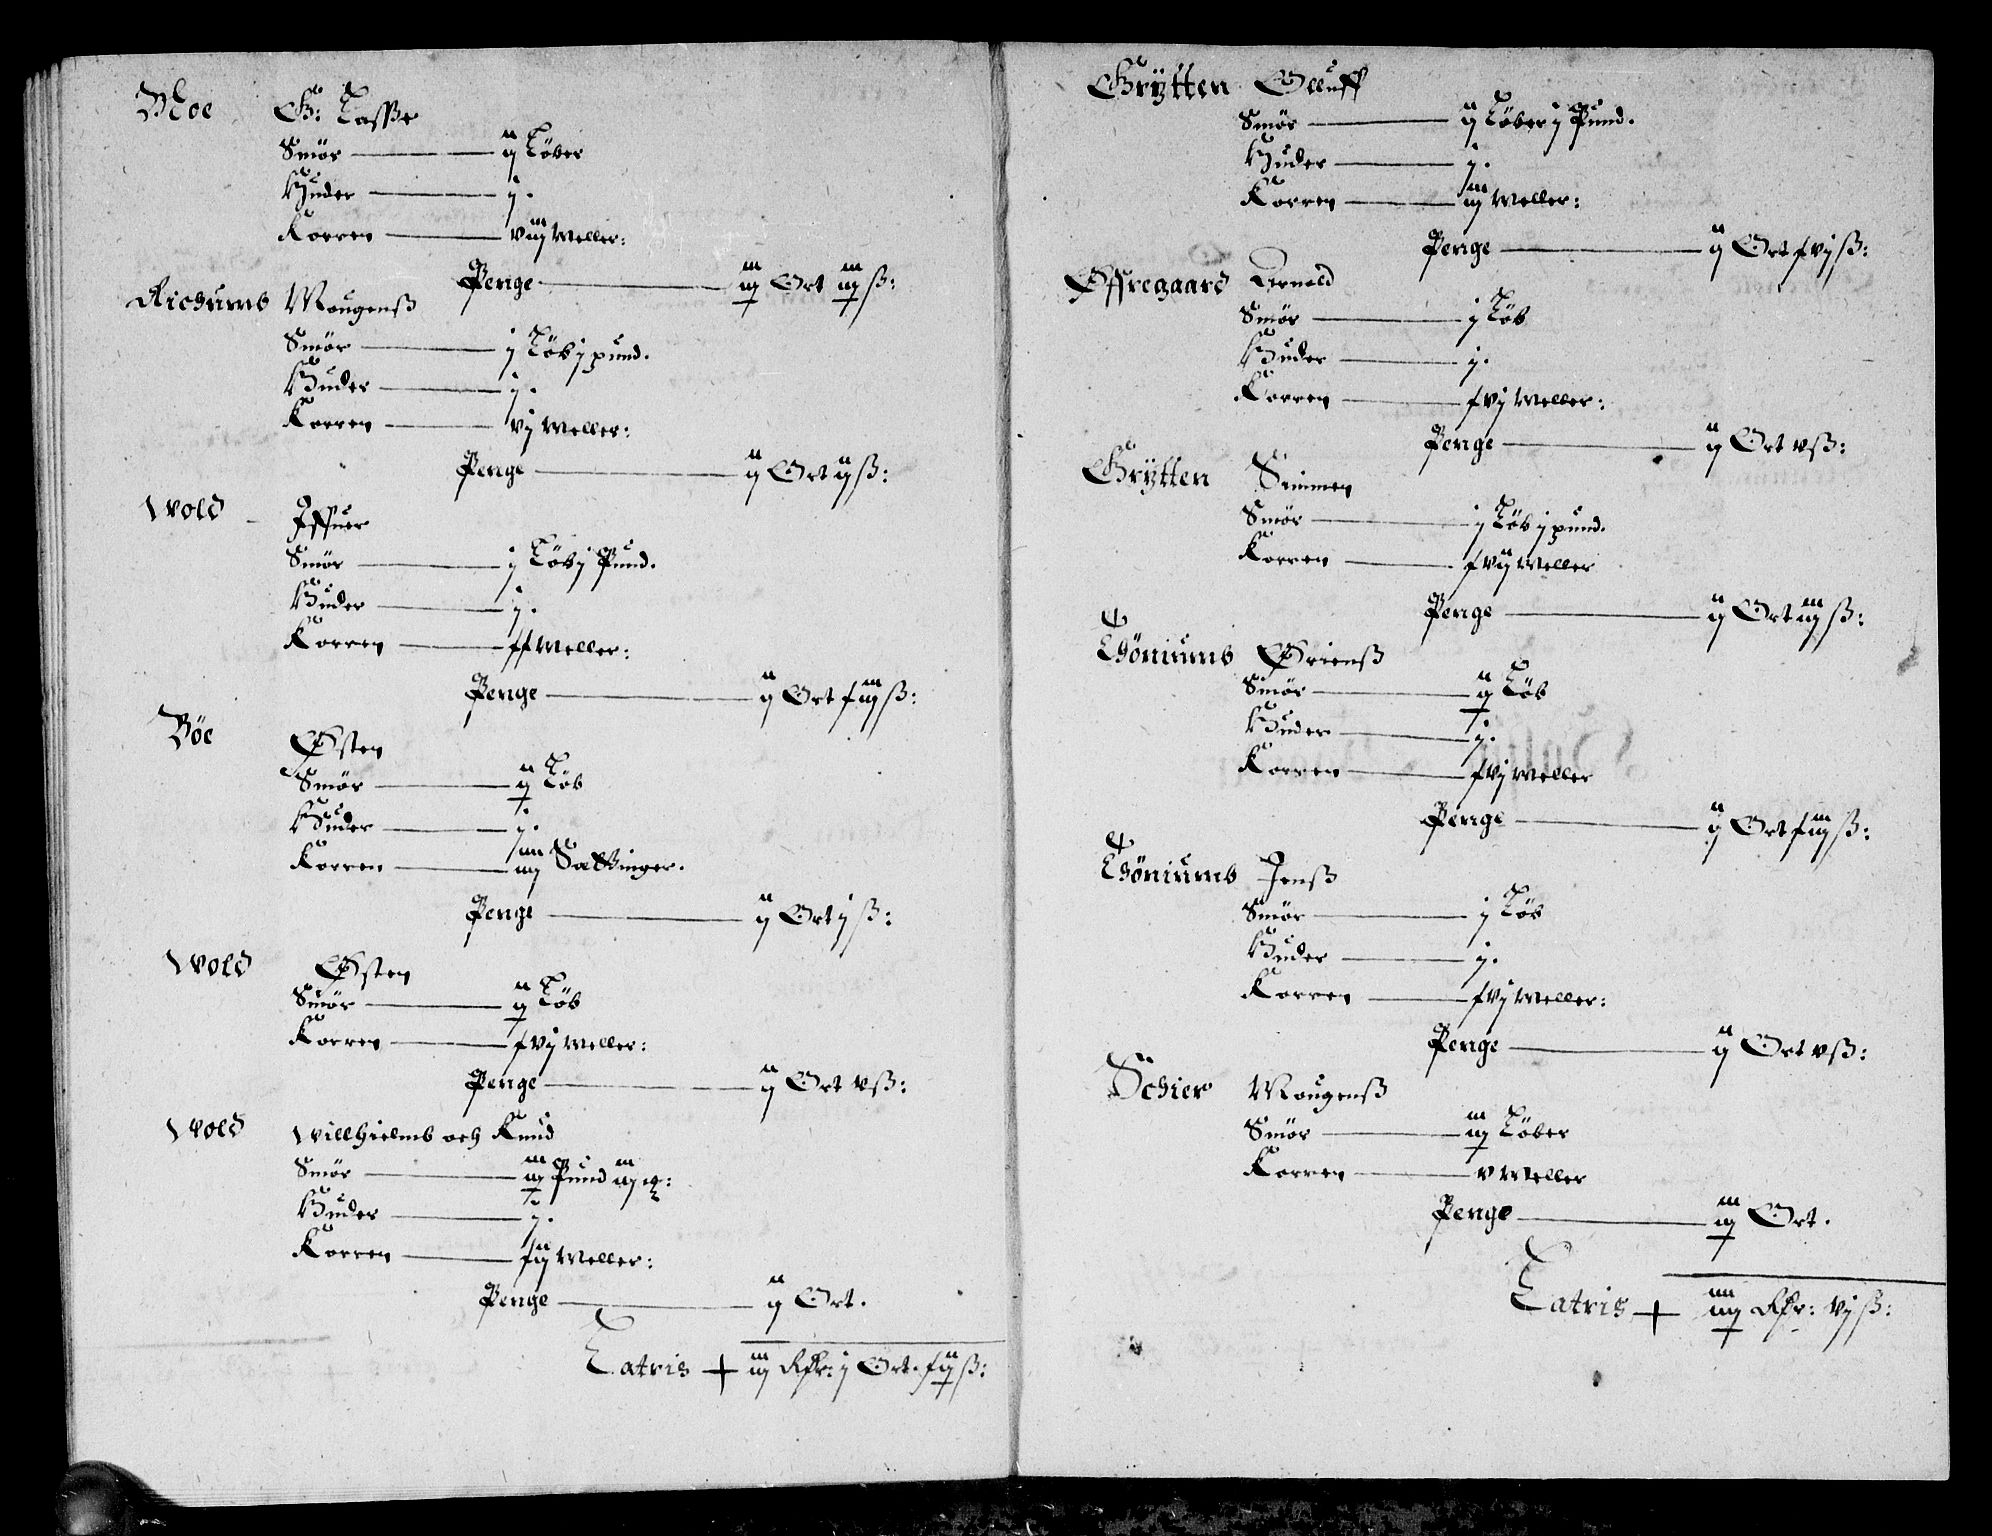 Moe G: Lasße
Smör — ij Löber
Huder — j.
Korren — viij Meller:
Penge — iij Ort iiij ß:
Mougenß
Smör — j Löb j pund.
Huder — j.
Korren — vj Meller:
Penge — ij Ort ij ß:
Wold Iffuer
Smör — j Löb j Pund.
Huder — j.
Korren — xx Meller:
Penge — ij Ort xiij ß:
Böe Østen
Smör — ij Löb
Huder — j.
Korren — Sættinger.
Penge — ij Ort j ß:
Wold Østen
Smör — ij Löb
Korren — xvj Meller:
Penge — ij Ort v ß:
Wold Willhielmb och Knud
Smör — iij Pund iij
Huder — j.
Korren — xij Meller:
Penge — ij Ort.
Latris + iij Rdr: j Ort. xij ß:
Grÿtten Olluff
Smör — ij Löber j Pund.
Huder — j.
Korren — xiij Meller:
Penge — ij Ort xvj ß:
Øffregaard Arnold
Smör — j Löb
Huder — j.
Korren — xvj Meller:
Penge — ij Ort v ß:
Grÿtten Simmen
Smör — j Löb j pund.
Korren — xvij Meller
Penge — ij Ort iij ß:
Thöniumb
Smör — ij Löb
Huder — j.
Korren — xvj Meller
Penge — ij Ort xiij ß:
Thöniumb Jenß
Smör — j Löb
Huder — j.
Korren — xvj Meller:
Penge — ij Ort v ß:
Schier Mougenß
Smör — iij Löber
Korren — v Meller
Penge — iij Ort.
Latris + iiij Rdr: vj ß: